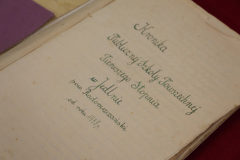 Kronika
Publicznej Szkoły Powszechnej
Pierwszego Stopnia
w Jedlnie
pow. Radomszczański
od roku